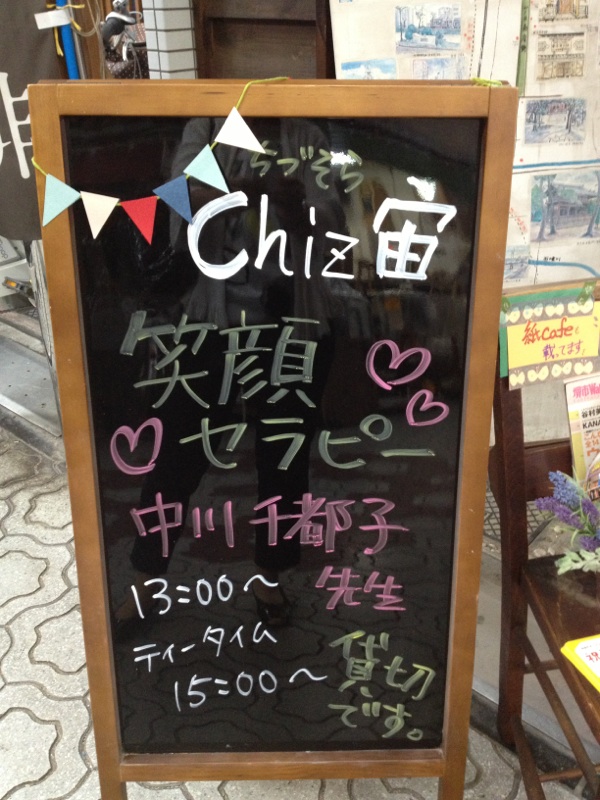 ちづそら
Chiz宙
笑顔
セラピー
中川千都子
先生
13:00〜
ティータイム
15:00〜
貸切
です。
紙cafeも
載ってます!